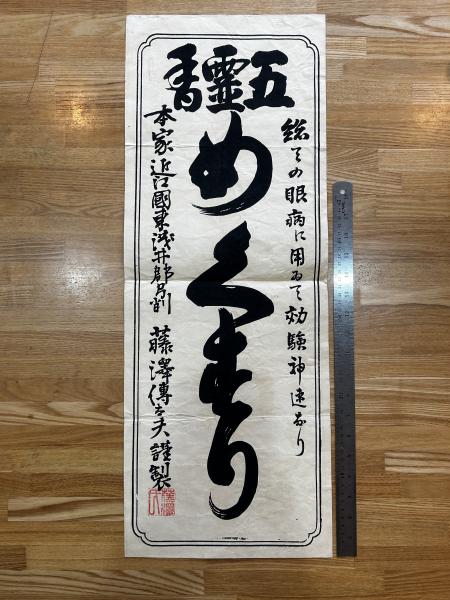 五靈香
総ての眼病に用ゐて効験神速なり
めくすり
本家近江國東浅井郡弓削 藤澤傳太夫謹製